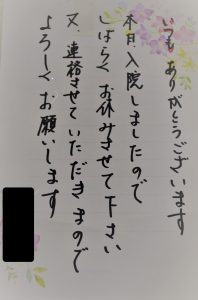 いつもありがとうございます
本日、入院しましたので
しばらくお休みさせて下さい
又、連絡させていただきまので
よろしくお願いします